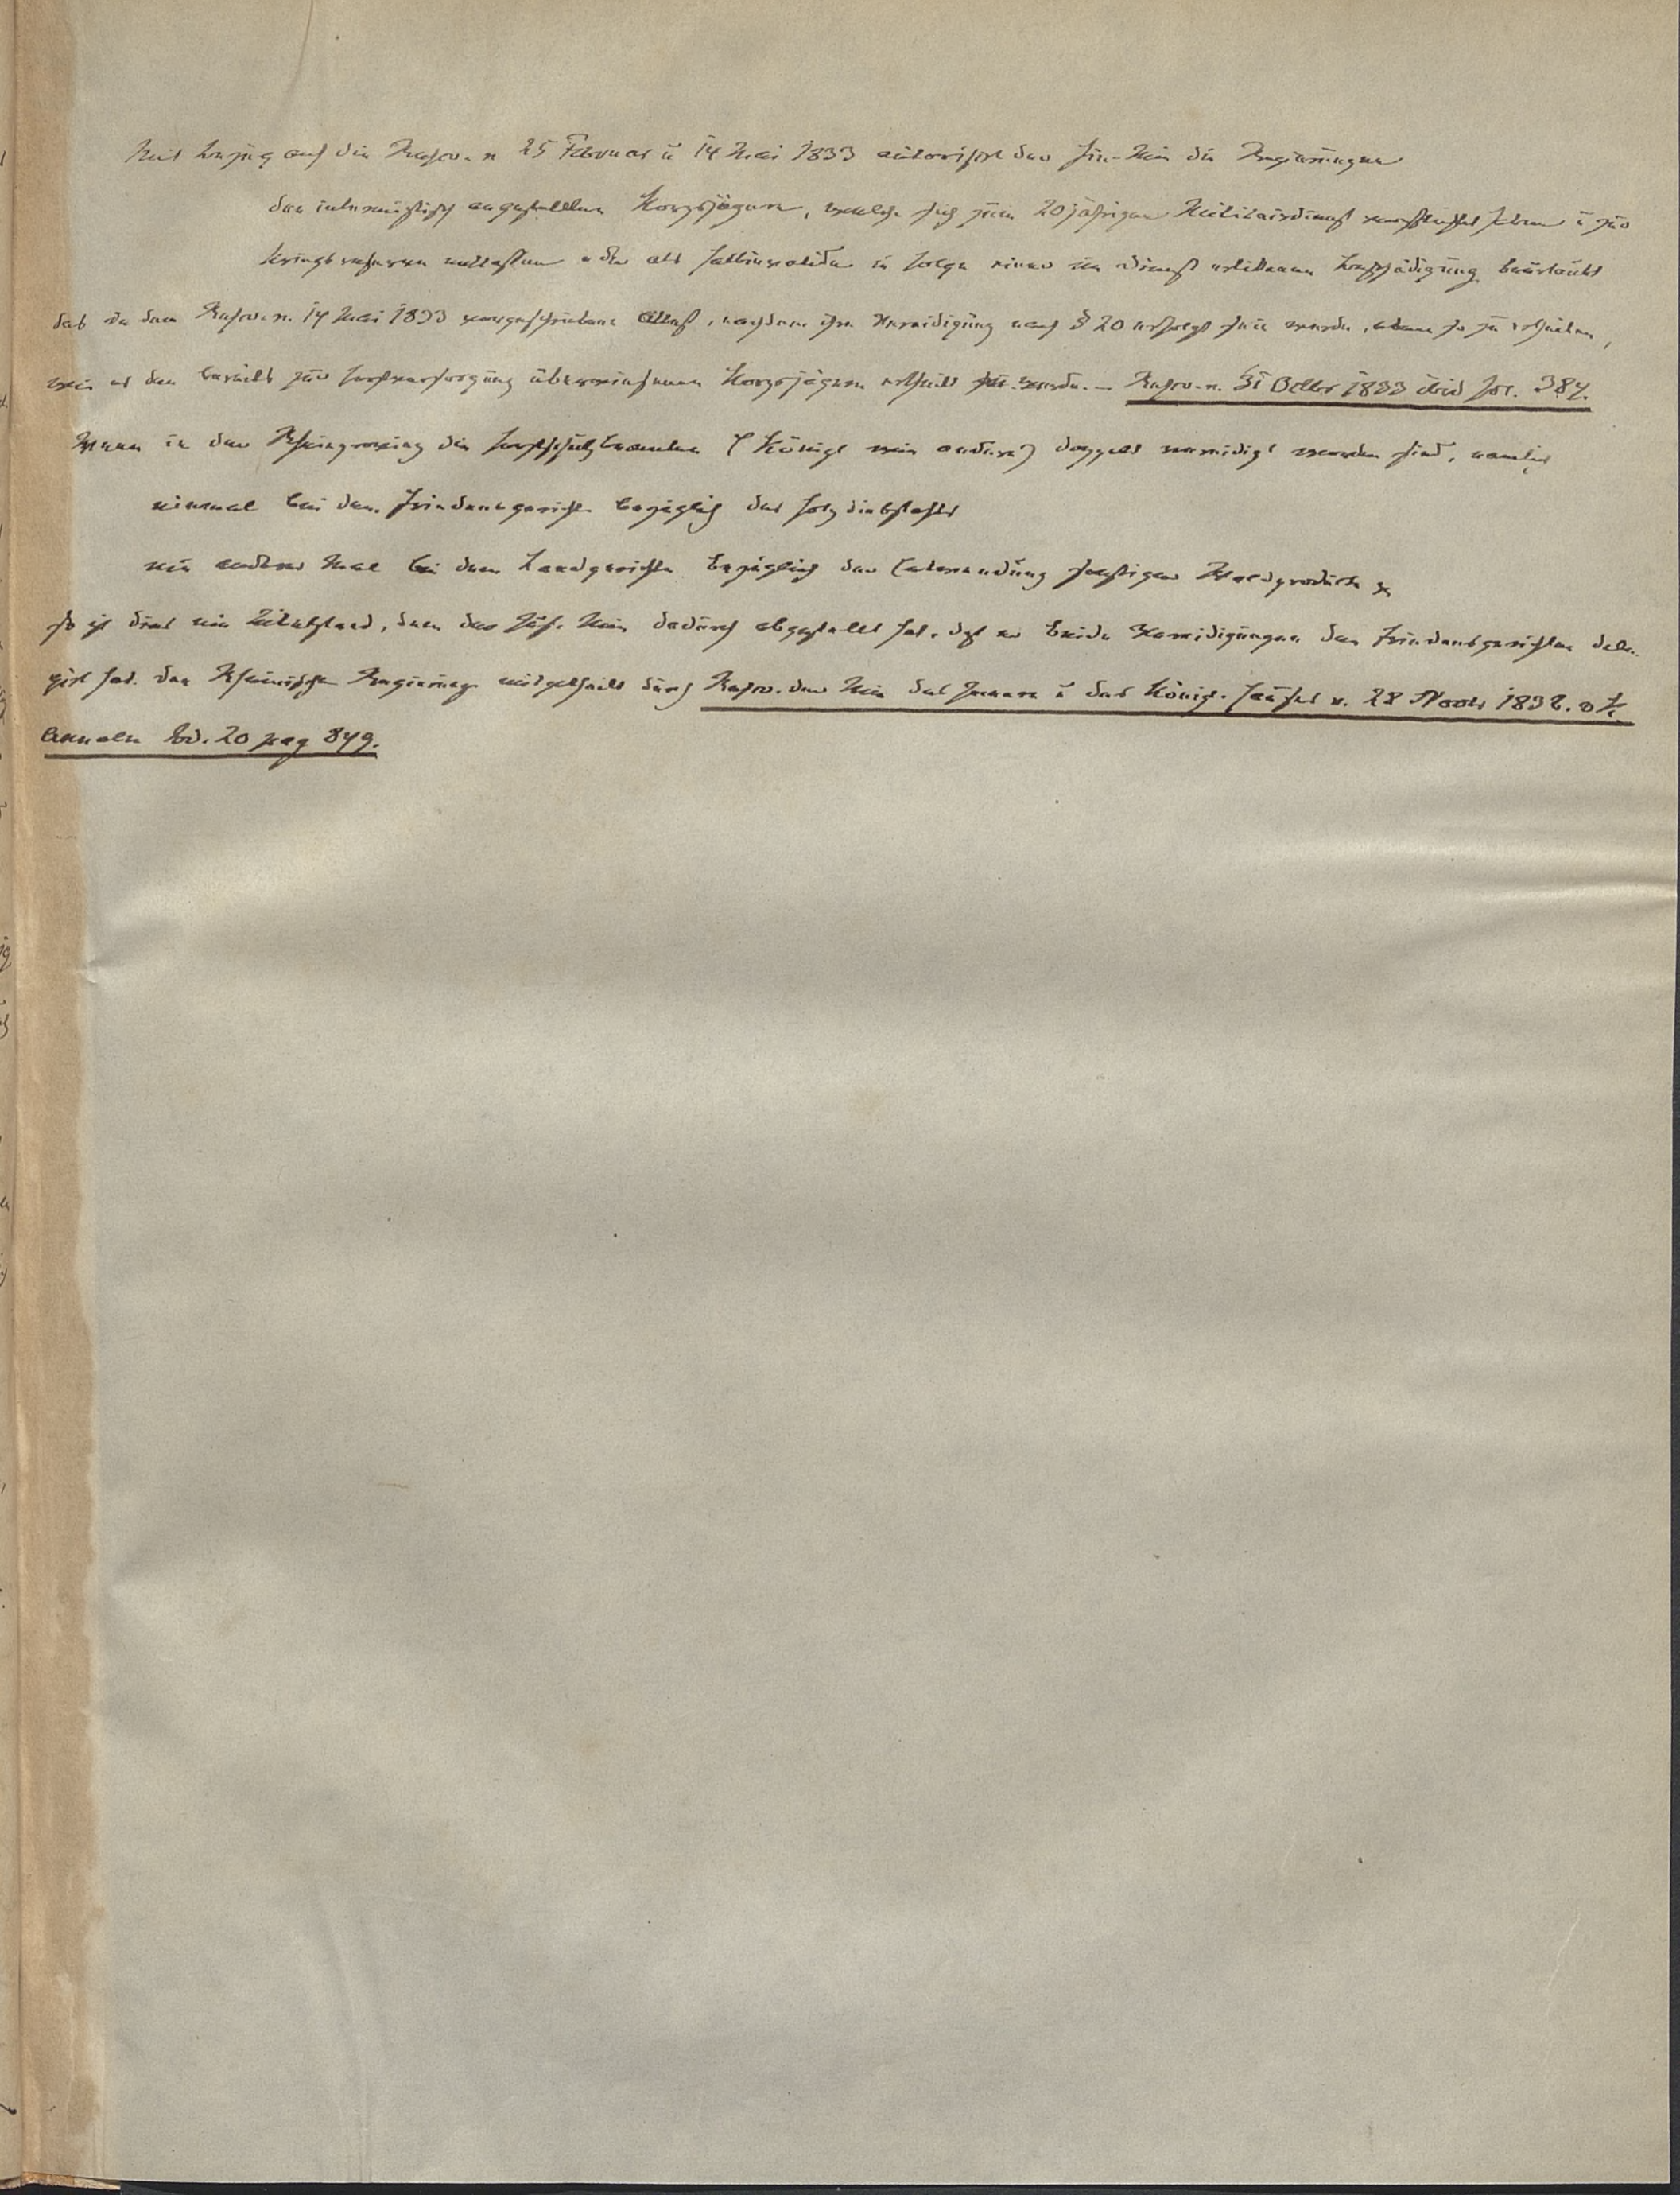 Mit Bezug auf die Rescr. v 25 Februar u 14 Mai 1833 autorisirt der Fin. Min die Regierungen
den interimistisch angestellten Korpsjägern, welche sich zum 20jährigen Militairdienst verpflichtet haben u zur
Kriegsreserve entlassen oder als halbinvalide in Folge einer im Dienst erlittenen Beschädigung beurlaubt
das in dem Rescr. v. 14 Mai 1833 vorgeschriebene Attest, nachdem ihre Vereidigung nach § 20 erfolgt sein werde, eben so zu ertheilen,
wie es den bereits zur Forstversorgung überwiesenen Korpsjägern ertheilt werde. — Rescr. v. 31 Octbr 1833 ibid fol. 384.
Wenn in der Rheinprovinz die Forstschutzbeamten (Königl wie andere) doppelt vereidigt worden sind, namlich
einmal bei den Friedensgerichten bezüglich des Holzdiebstahls
ein anderes Mal bei den Landgerichten bezüglich der Entwendung sonstiger Waldproducte
so ist dies ein Uebelstand, dem der Just. Min dadurch abgestellt hat, daß er beide Vereidigungen den Friedensgerichten dele-
girt hat. den Rheinischen Regierungen mitgetheilt durch Rescr. der Min des Innern u des Königl. Hauses v. 28 Novbr 1832. v K.
Annalen Bd. 20 pag 849.